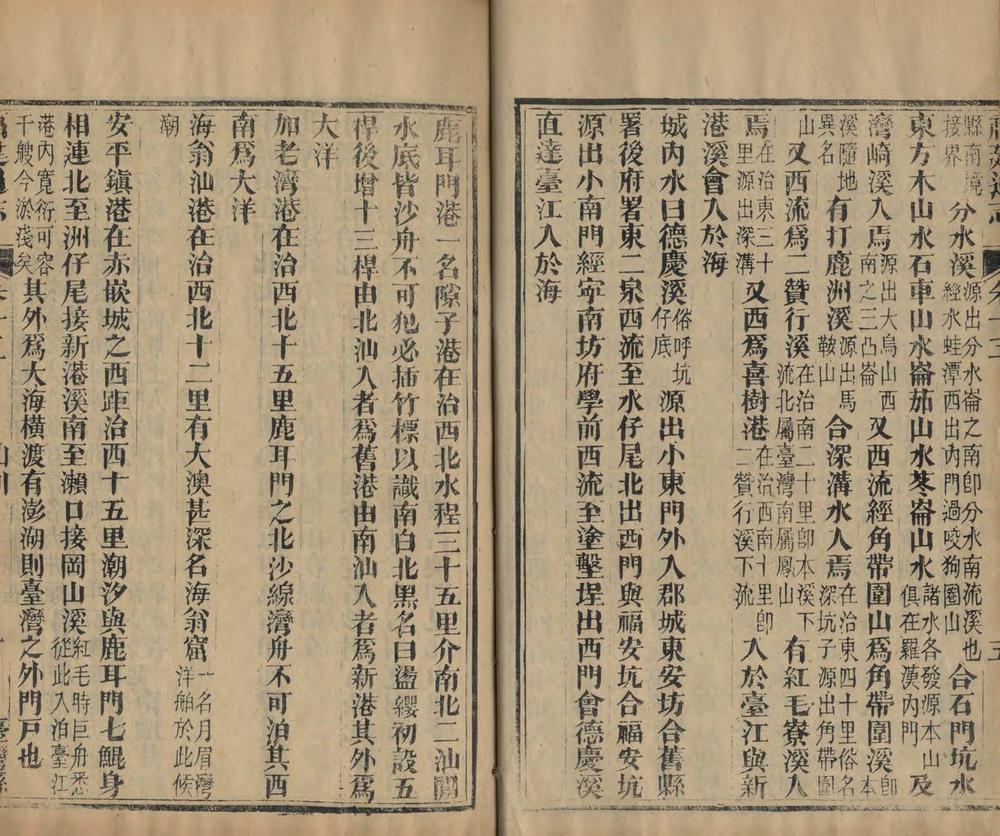 縣南境接界分水溪源出分水崙之南即分水南流溪也經水蛙潭西出內門過咬狗圈山合石門坑水
東方木山水石車山水崙茄山水苳崙山水諸水各發源本山俱在羅漢內門及
灣崎溪入焉源出大烏山西南之三凸崙又西流經角帶圍山爲角帶圍溪即本
溪隨地異名有打鹿洲溪源出馬鞍山合深溝水入焉在治東四十里俗名深坑子源出角帶圍
山又西流爲二贊行溪在治南二十里即本溪下流北屬臺灣南屬鳳山有紅毛寮溪入
焉在治東三十里源出深溝又西爲喜樹港在治西南十里即二贊行溪下流入於臺江與新
港溪會入於海
城內水曰德慶溪俗呼坑仔底源出小東門外入郡城東安坊合舊縣
署後府署東二泉西流至水仔尾北出西門與福安坑合福安坑
源出小南門經寧南坊府學前西流至塗墼埕出西門會德慶溪
直達臺江入於海
鹿耳門港一名隙子港在治西北水程三十五里介南北二汕間
水底皆沙舟不可犯必插竹標以識南白北黑名曰盪纓初設五
桿後增十三桿由北汕入者爲舊港由南汕入者爲新港其外爲
大洋
加老灣港在治西北十五里鹿耳門之北沙線灣舟不可泊其西
南爲大洋
海翁汕港在治西北十二里有大澳甚深名海翁窟一名月眉灣洋舶於此候
潮
安平鎮港在赤嵌城之西距治西十五里潮汐與鹿耳門七鯤身
相連北至洲仔尾接新港溪南至瀨口接岡山溪紅毛時巨舟悉從此入泊臺江
港內寬衍可容千艘今淤淺矣其外爲大海橫渡有澎湖則臺灣之外門戶也